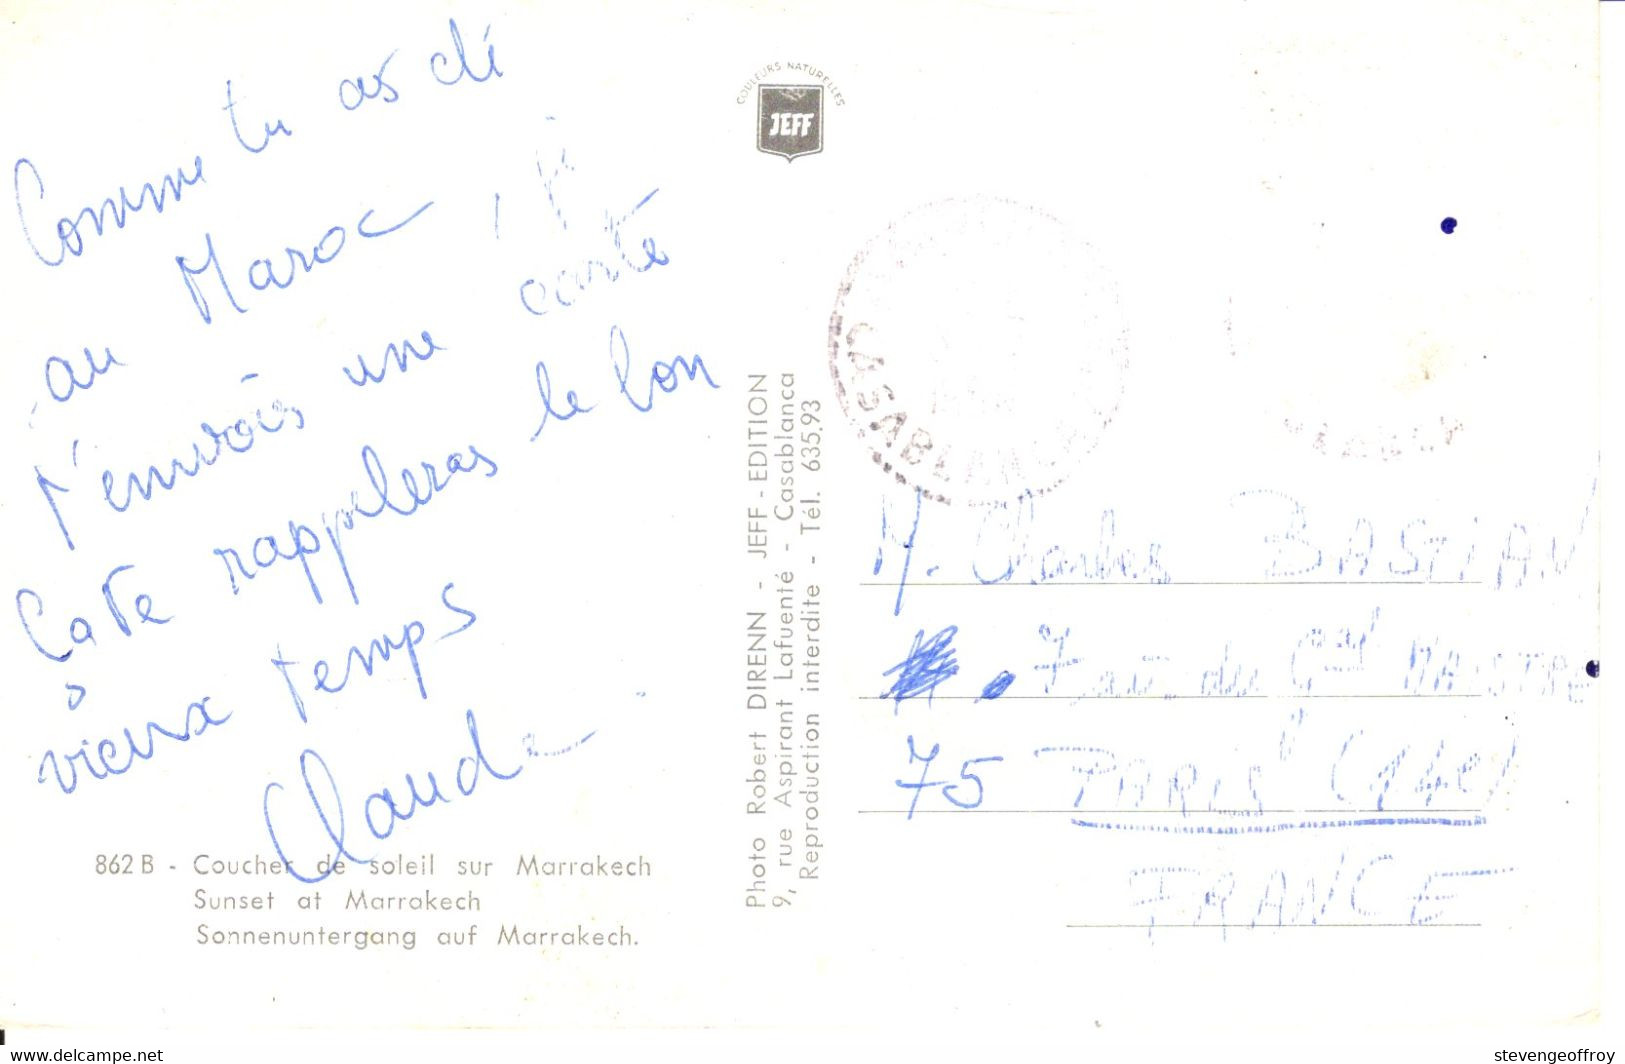 Comme tu as été
au Maroc, je
t'envois une carte
ça te rappeleras le bon
vieux temps
Claude
862 B - Coucher de soleil sur Marrakech
Sunset at Marrakech
Sonnenuntergang auf Marrakech.
COULEURS NATURELLES
JEFF
Photo Robert DIRENN - JEFF - EDITION
9, rue Aspirant Lafuenté - Casablanca
Reproduction interdite - Tél. 635.93
CASABLANCA
M. Charles BASTIAN
7 du Gal MAISTRE
75 PARIS (14e)
FRANCE
www.delcampe.net
stevengeoffroy